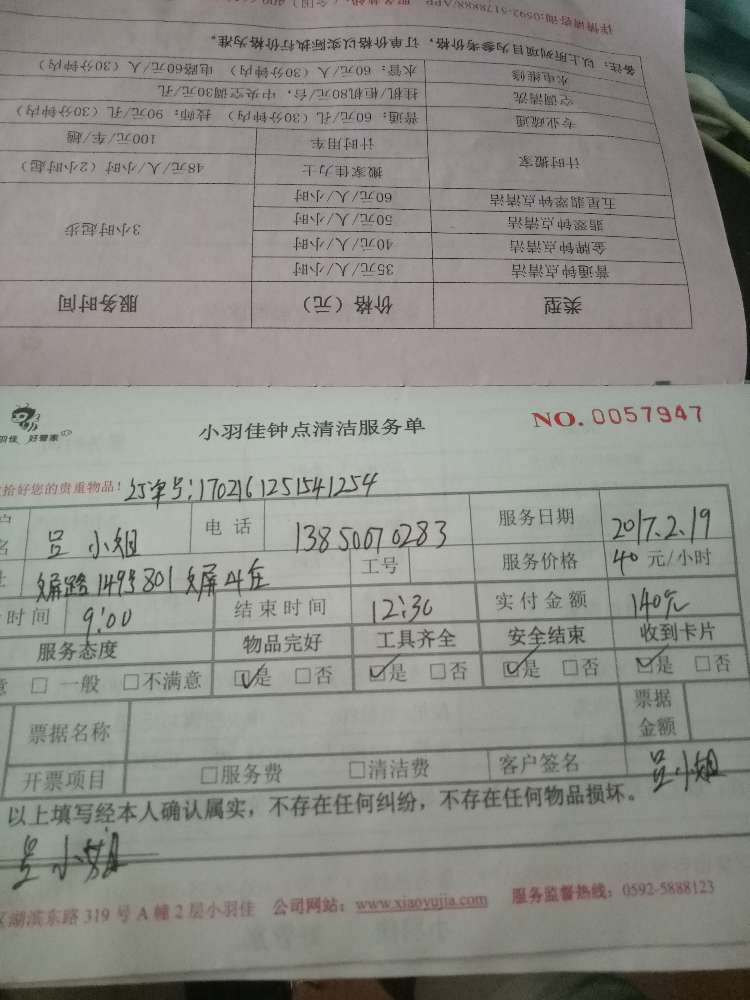 详情请咨询:0592-5178888/APP
备注：以上所列项目为参考价格，订单价格以实际执行价格为准。
水电维修 水管：60元/人（30分钟内） 电路60元/人（30分钟内）
空调清洗 挂机/柜机80元/台，中央空调30元/孔
专业疏通 普通：60元/孔（30分钟内） 技师：90元/孔（30分钟内）
计时搬家 计时用车 100元/车/趟
搬家佳力士 48元/人/小时（2小时起）
五星翡翠钟点清洁 60元/人/小时
翡翠钟点清洁 50元/人/小时
金牌钟点清洁 40元/人/小时 3小时起步
普通钟点清洁 35元/人/小时
类型 价格（元） 服务时间
羽佳 好管家
小羽佳钟点清洁服务单
NO. 0057947
拾好您的贵重物品！ 订单号:170216125154 1254
名 吕小姐 电话 13850070283 服务日期 2017.2.19
屏路149号801 工号 服务价格 40元/小时
时间 9:00 结束时间 12:30 实付金额 140元
服务态度 物品完好 工具齐全 安全结束 收到卡片
意 □一般 □不满意 ☑是 □否 ☑是 □否 ☑是 □否 ☑是 □否
票据名称 票据金额
开票项目 □服务费 □清洁费 客户签名 吕小姐
以上填写经本人确认属实，不存在任何纠纷，不存在任何物品损坏。
吕小姐
区湖滨东路319号A幢2层小羽佳 公司网站：www.xiaoyujia.com 服务监督热线：0592-5888123